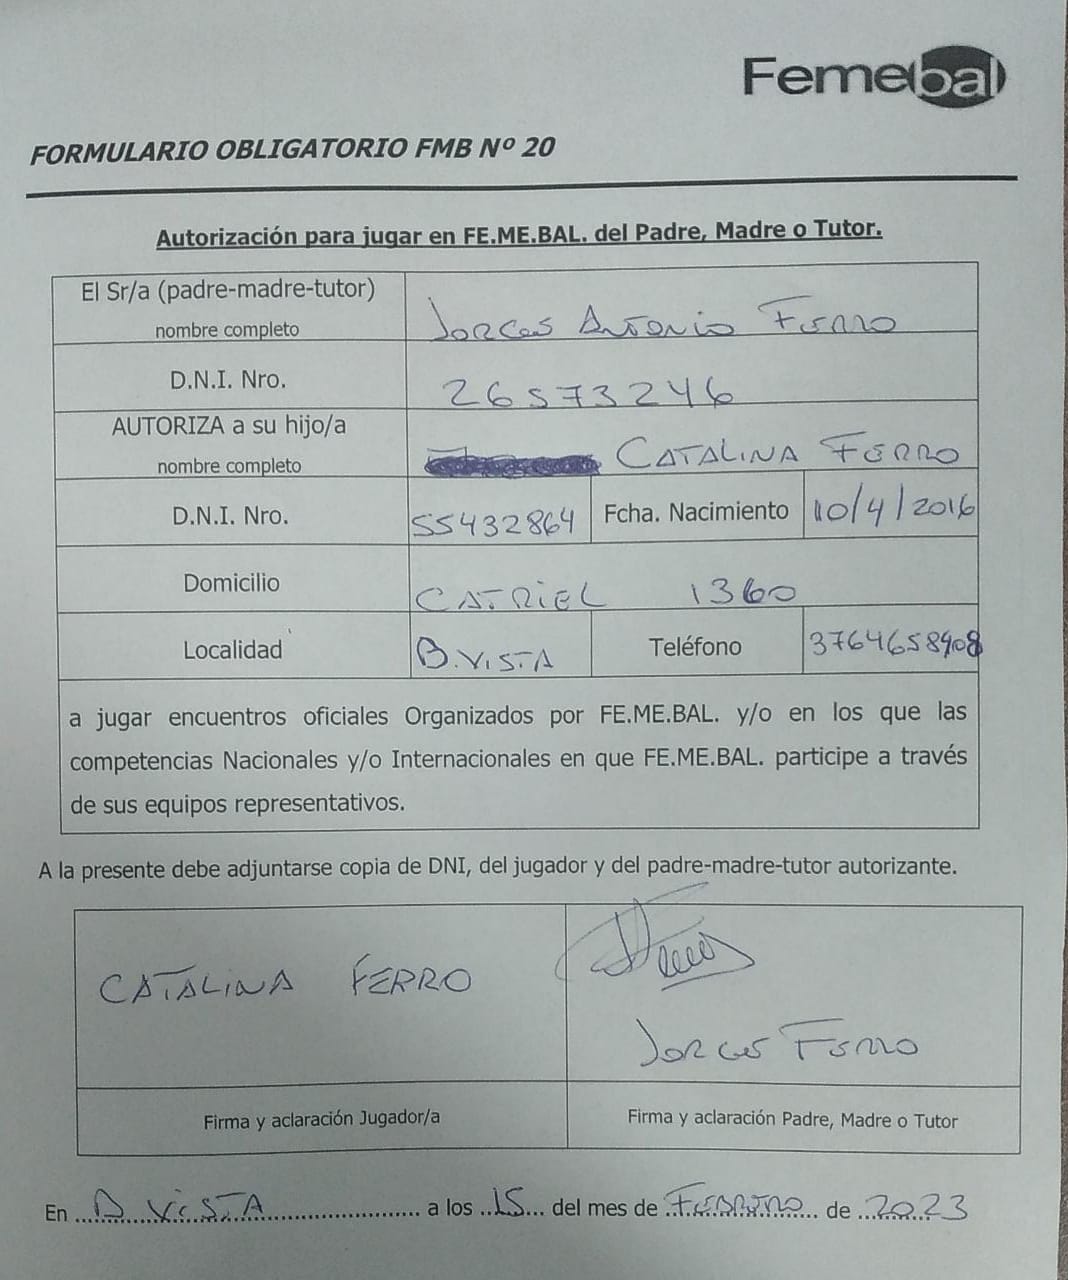 Femebal
FORMULARIO OBLIGATORIO FMB Nº 20
Autorización para jugar en FE.ME.BAL. del Padre, Madre o Tutor.
El Sr/a (padre-madre-tutor)
nombre completo
Jorge Antonio Ferro
D.N.I. Nro.
26573246
AUTORIZA a su hijo/a
nombre completo
CATALINA FERRO
D.N.I. Nro.
55432864
Fcha. Nacimiento
10/4/2016
Domicilio
CATRIEL 1360
Localidad
B. VISTA
Teléfono
3764658908
a jugar encuentros oficiales Organizados por FE.ME.BAL. y/o en los que las
competencias Nacionales y/o Internacionales en que FE.ME.BAL. participe a través
de sus equipos representativos.
A la presente debe adjuntarse copia de DNI, del jugador y del padre-madre-tutor autorizante.
CATALINA FERRO
Jorge Ferro
Firma y aclaración Jugador/a
Firma y aclaración Padre, Madre o Tutor
En B VISTA a los 15 del mes de FEBRERO de 2023